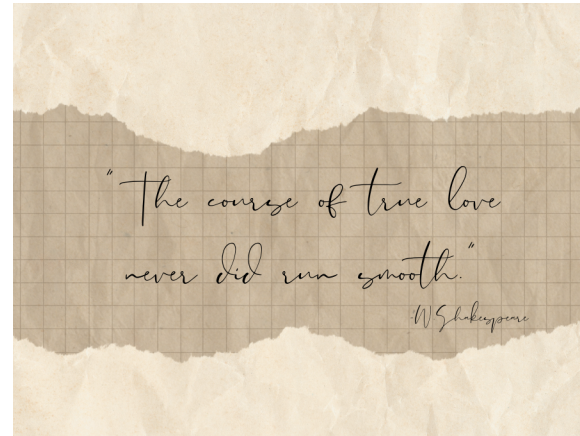 "The course of true love
never did run smooth."
W.Shakespeare